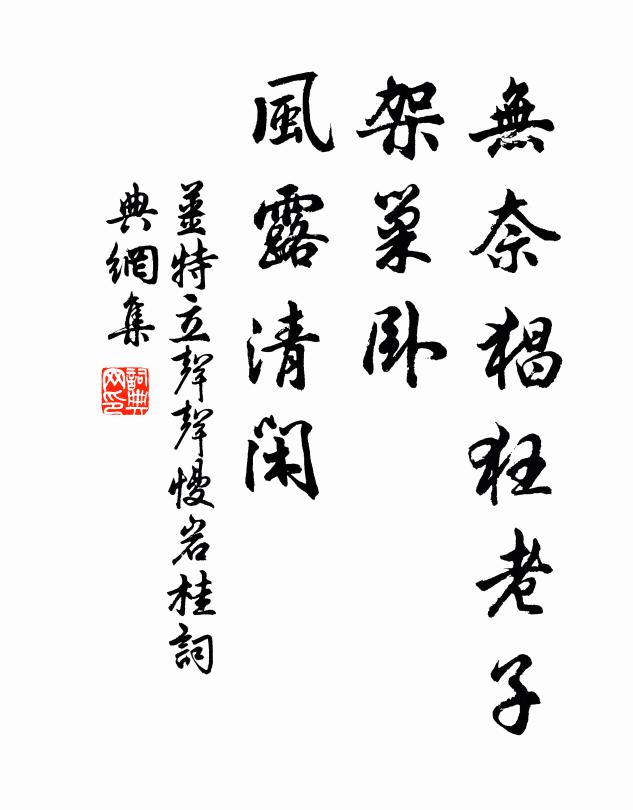 無奈猖狂老子
架巢臥
風露清閑
姜特立聲聲慢岩桂詞
典網集
詞典
网印